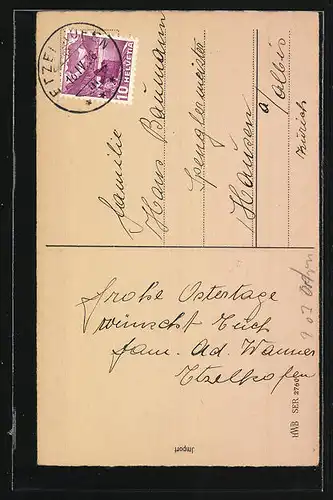 ETZEL
10
HELVETIA
Familie
Hans Baumann
Spenglermeister
Hausen
a/Albis
Zürich
Frohe Ostertage
wünscht Euch
Fam. Ad. Wanner
Etzelkofen
HWB SER 2760
Import